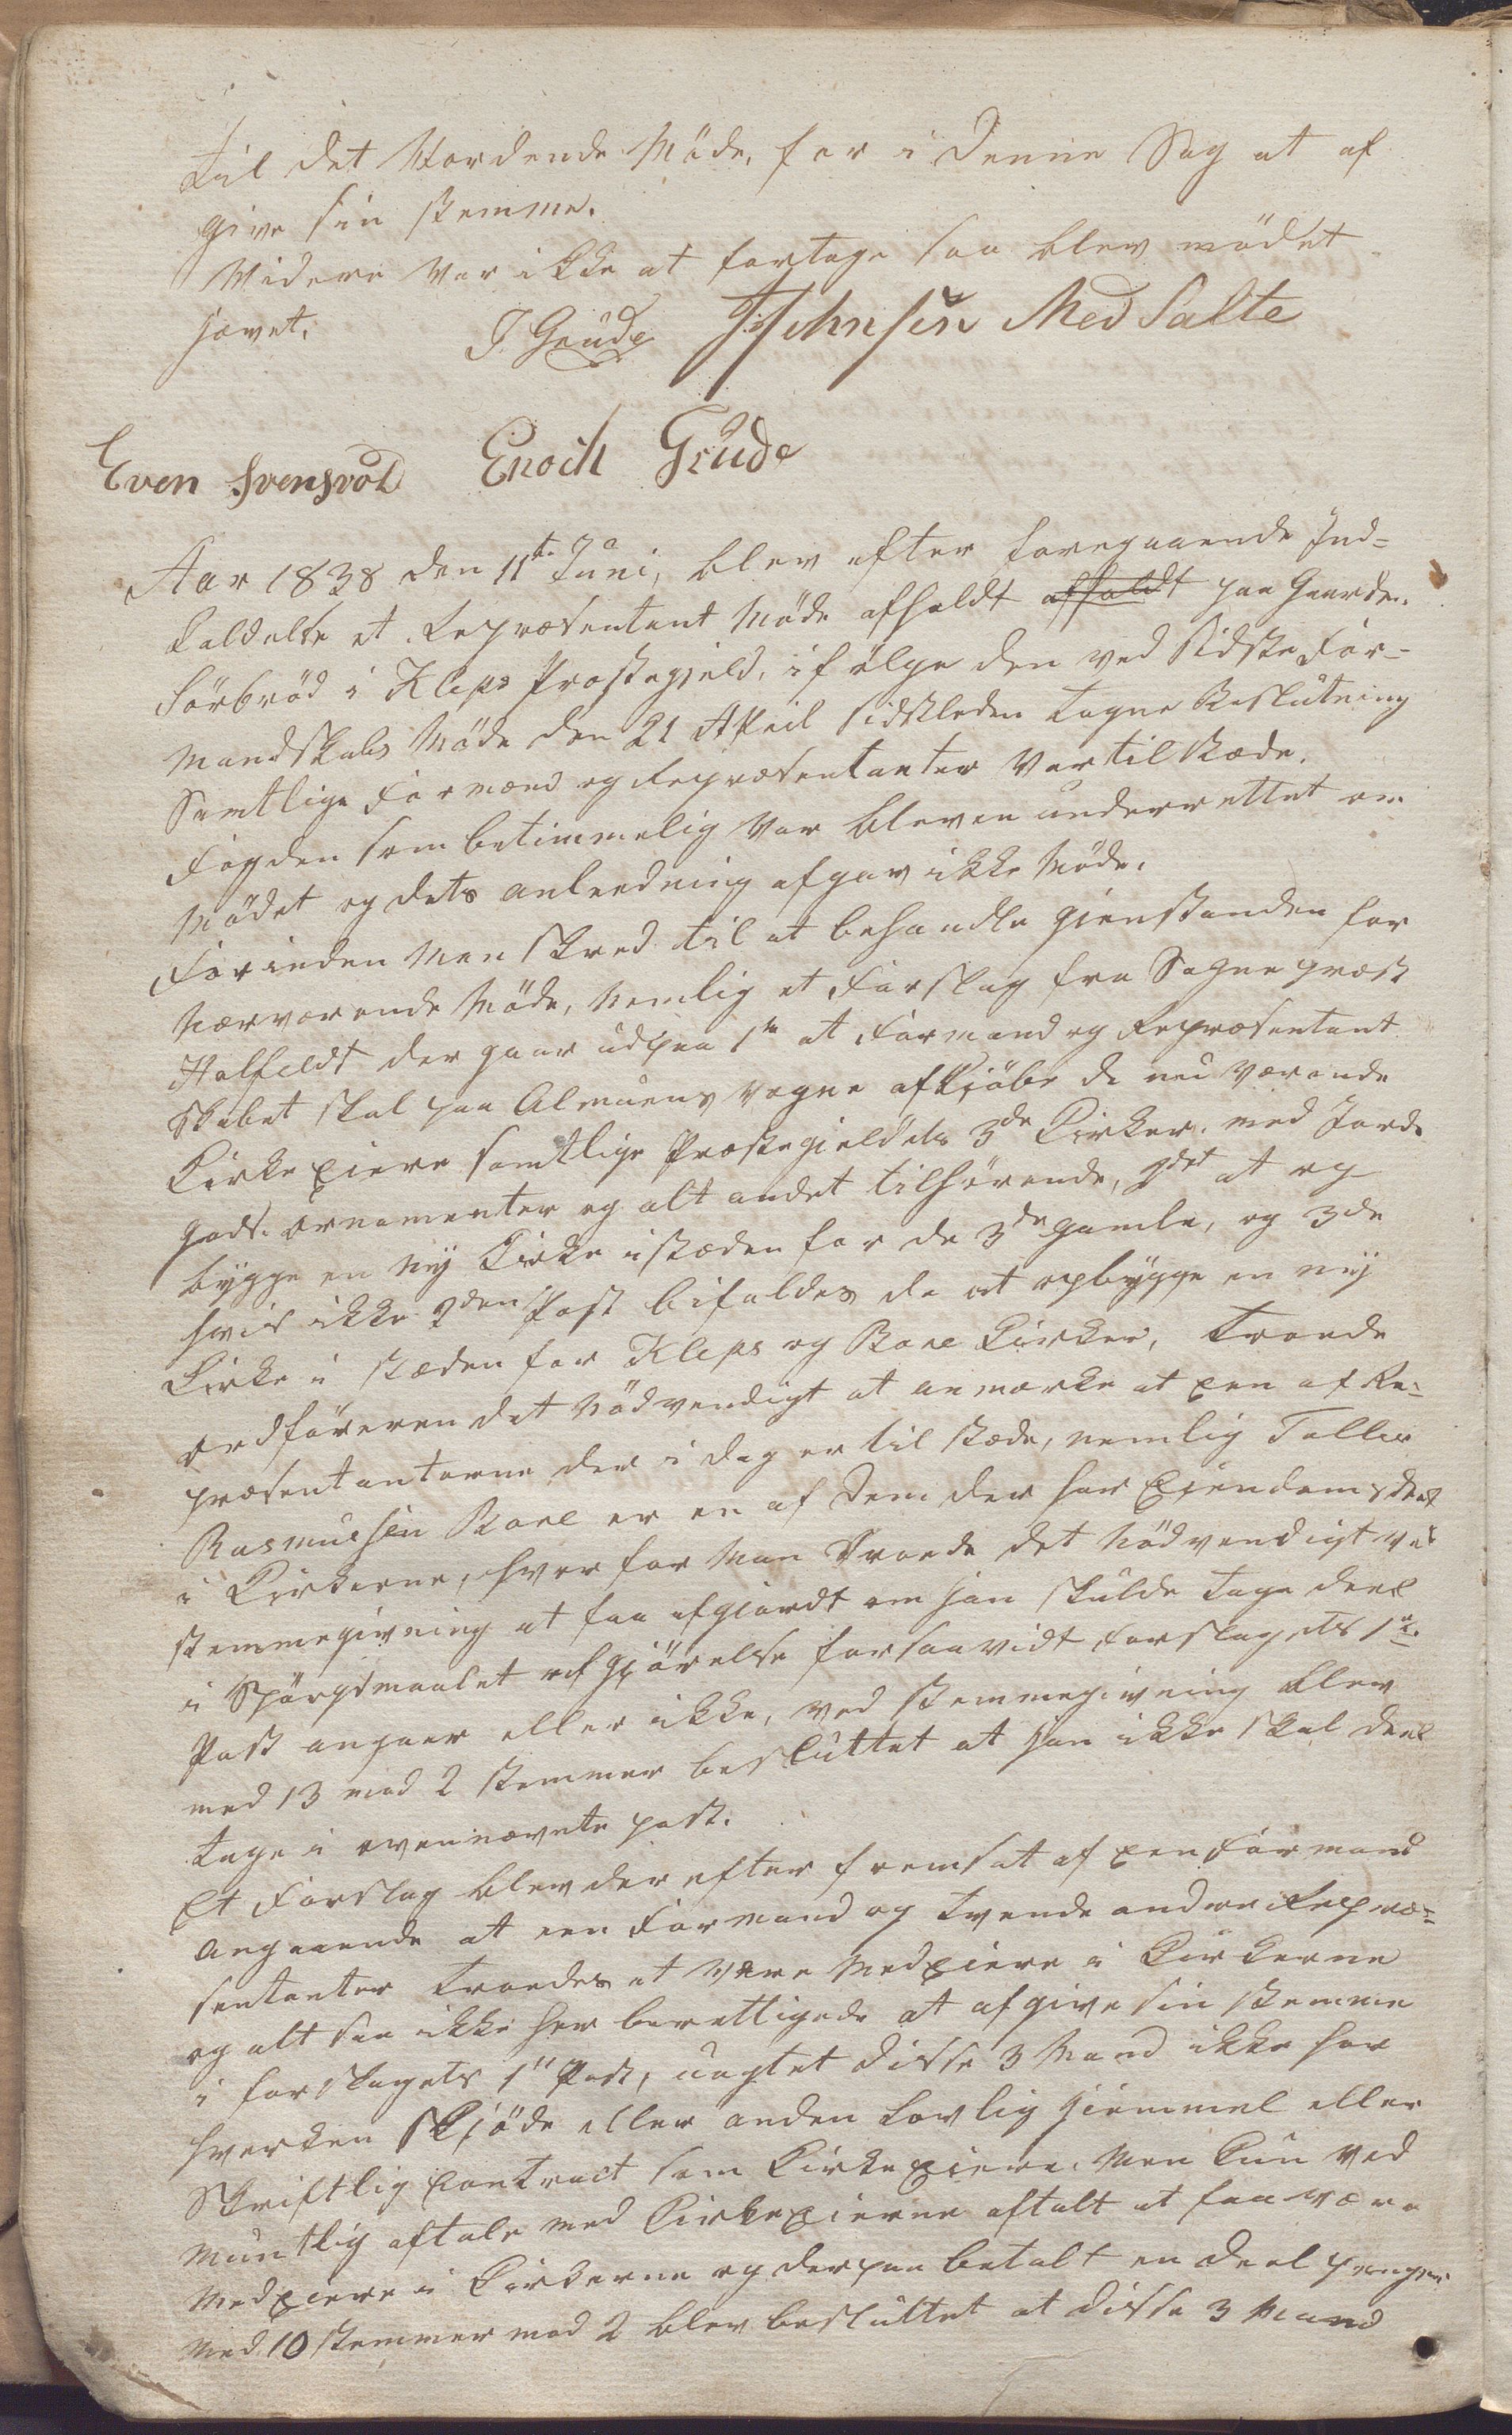 til det Vordende Möde, for i denne Sag at af
give sin stemme.
Videre var ikke at foretage saa blev mödet
hævet.
J. Grude Johnsen Med Salte
Even Svensvol Enoch Grude
Aar 1838 den 11te Juni, blev efter foregaaende Ind-
kaldelse et Repræsentant Möde afholdt afholdt paa Gaarden
Sörbröd i Kleps Præstegjeld, ifölge den ved sidste For-
mandskabs Möde den 21 April sidstleden tagne Beslutning
Samtlige Formænd og Repræsentanter var tilstæde.
Fogden som betimmelig var bleven underrettet om
Mödet og dets anleedning afgav ikke Möde.
Forinden man skred til at behandle gienstanden for
nærværende Möde, nemlig et Forslag fra Sognepræst
Halfeldt der gaar udpaa 1te at Formand og Repræsentant
skabet skal paa Almuens vegne afkjöbe de nu værende
Kirke Eiere samtlige Præstegieldets 3de Kirker, med Jorde
gods. ornamenter og alt andet tilhörende, 2det at og
bygge en ny Kirke istæden for de 3de gamle, og 3de
hvis ikke 2den Post bifaldes da at opbygge en nij
Kirke i stæden for Kleps og Bore Kirker, troede
ordföreren det Nödvendigt at anmærke at een af Re-
præsentanterne der i dag er til stæde, nemlig Tollev
Rasmusen Bore er en af dem der har Eiendomsdeel
i Kirkerne, hvorfor man troede det nödvendigt ved
stemmegivning at faa afgiordt om han skulde tage deel
i Spörgsmaalet afgjörelse forsaavidt forslagets 1te
Post angaar eller ikke, ved stemmegivning blev
med 13 mod 2 stemmer besluttet at han ikke skal deel
tage i ovennævnte post.
Et Forslag blev der efter fremsat af een Formand
angaaende at een Formand og tvende andre Repræ-
sentanter troedes at være Medeiere i Kirkerne
og altsaa ikke her berettigede at afgive sin stemme
i forslagets 1te Post, uagtet disse 3 Mand ikke har
hverken Skjöde eller anden lovlig hiemmel eller
Skriftlig contract som Kirkeeiere. Men kun ved
Muntlig aftale med Kirkeeierne aftalt at faa være
Medeiere i Kirkerne og derpaa betalt en deel penge
Med 10 stemmer mod 2 blev besluttet at disse 3 Mand